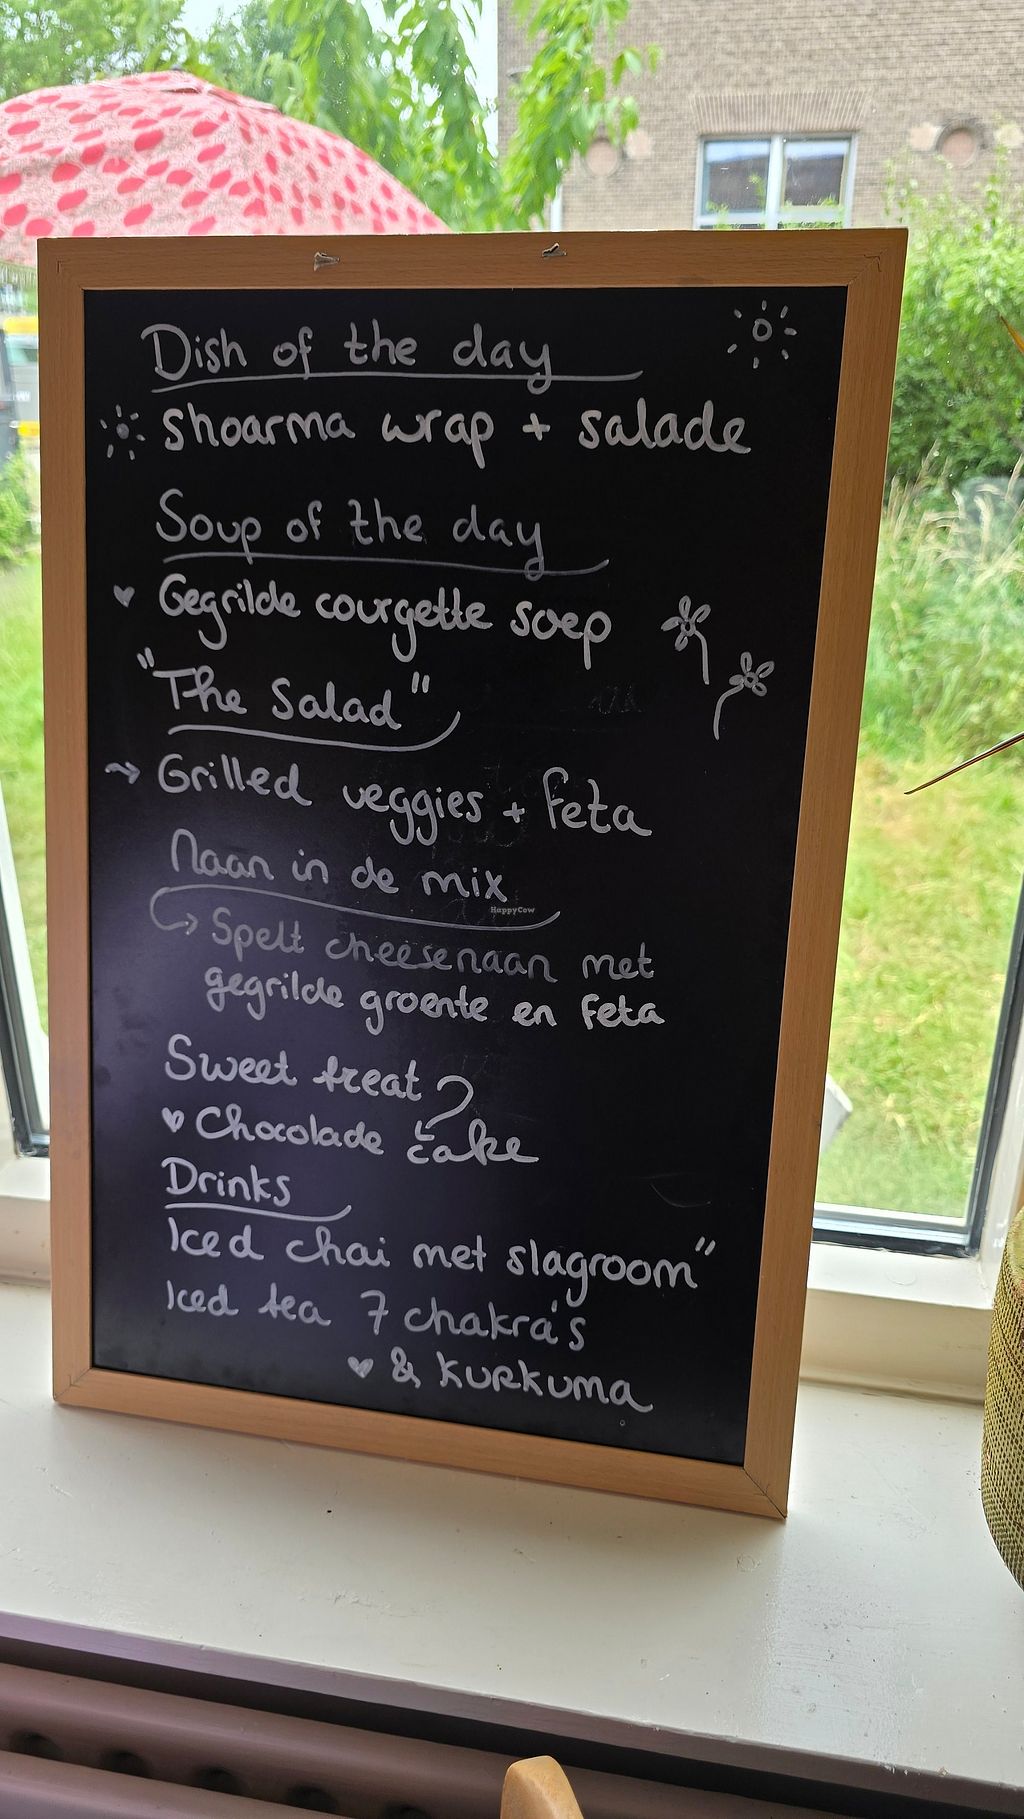 Dish of the day
shoarma wrap + salade
Soup of the day
Gegrilde courgette soep
"The Salad"
Grilled veggies + feta
Naan in de mix
HappyCow
Spelt cheesenaan met
gegrilde groente en feta
Sweet treat
Chocolade cake
Drinks
Iced chai met slagroom"
Iced tea 7 chakra's
& KURKUMA